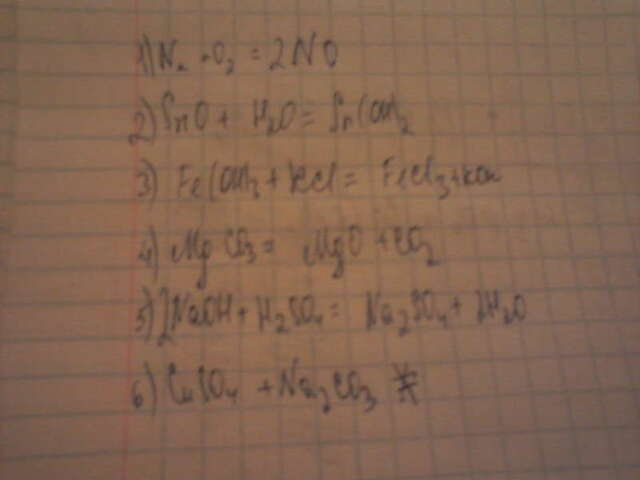 1) N₂ + O₂ = 2NO
2) SnO + H₂O = Sn(OH)₂
3) Fe(OH)₃ + KCl = FeCl₃ + KOH
4) MgCO₃ = MgO + CO₂
5) 2NaOH + H₂SO₄ = Na₂SO₄ + 2H₂O
6) CuSO₄ + Na₂CO₃